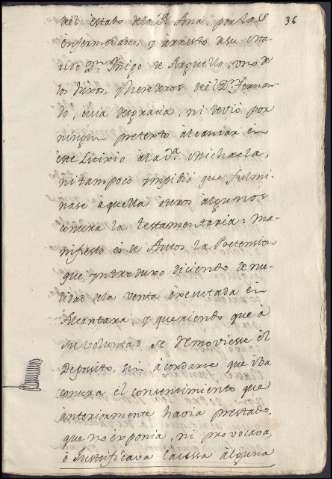 36
del estado de la R. Ama, por las
enfermedades, y arresto de su Ma-
rido Dn. Yñigo de Arguello, uno de
los hixos, y herederos del Dn. Fernan-
do, cuia desgracia, ni devió por
ningun pretexto alcanzar en
este Litixio a la Da. Michaela,
ni tampoco impidió que fulmi-
nase aquella otros algunos
contra la testamentaria: Ma-
nifiesto es de Autos la Pretension
que introduxo diciendo de nu-
lidad de la venta executada en
Alcantara, y queriendo que a
su voluntad se removiese el
deposito, sin acordarse que iba
contra el consentimiento que
anteriormente havia prestado,
que no exponia, ni provocava,
ò Justificava causa alguna